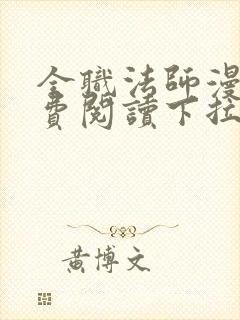 全職法師漫
費閱讀下拉
黃博文